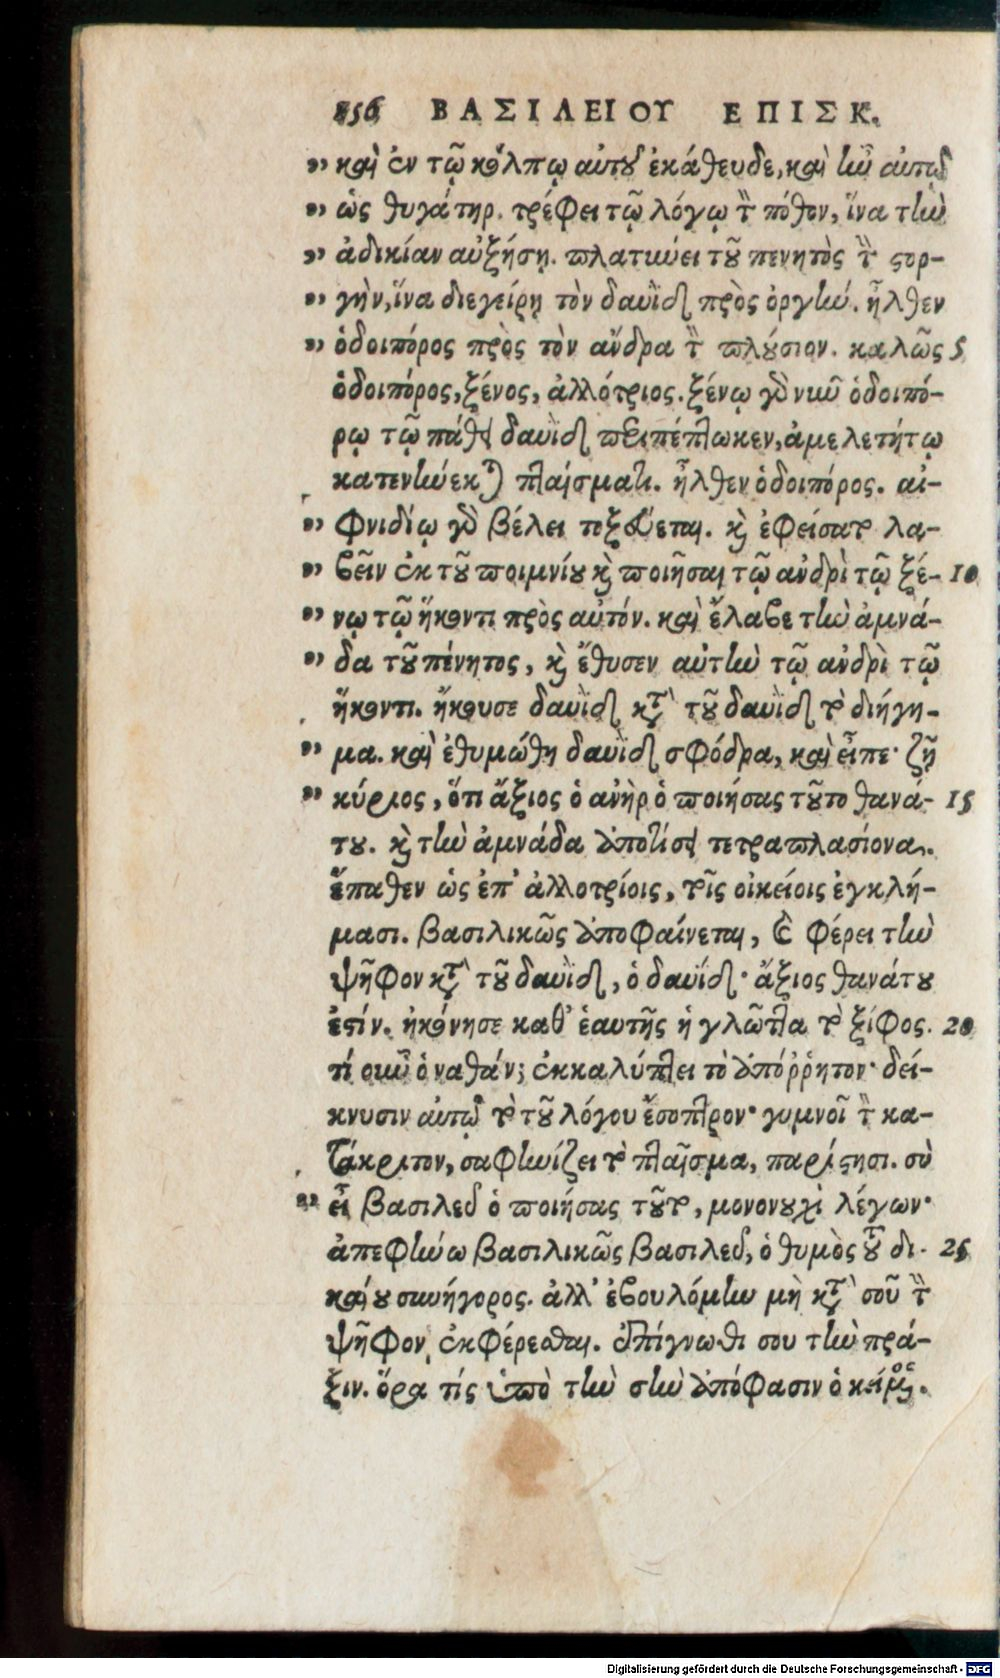 256 ΒΑΣΙΛΕΙΟΥ ΕΠΙΣΚ.
" καὶ ἐν τῷ κόλπῳ αὐτοῦ ἐκάθευδε, καὶ ἦν αὐτῷ
" ὡς θυγάτηρ. τρέφει τῷ λόγῳ τὸν πόθον, ἵνα τὴν
" ἀδικίαν αὐξήσῃ. πλατύνει τοῦ πενητὸς τὴν στορ-
" γὴν, ἵνα διεγείρῃ τὸν δαυῒδ πρὸς ὀργήν. ἦλθεν
" ὁδοιπόρος πρὸς τὸν ἄνδρα τὸν πλούσιον. καλῶς 5
ὁδοιπόρος, ξένος, ἀλλότριος. ξένῳ γὰρ νῦν ὁδοιπό-
ρῳ τῷ πάθει δαυῒδ περιπέπτωκεν, ἀμελετήτῳ
κατενήνεκται πταίσματι. ἦλθεν ὁδοιπόρος. αἰ-
" φνιδίῳ γὰρ βέλει τοξεύεται. καὶ ἐφείσατο λα-
" βεῖν ἐκ τοῦ ποιμνίου καὶ ποιῆσαι τῷ ἀνδρὶ τῷ ξέ- 10
" νῳ τῷ ἥκοντι πρὸς αὐτόν. καὶ ἔλαβε τὴν ἀμνά-
" δα τοῦ πένητος, καὶ ἔθυσεν αὐτὴν τῷ ἀνδρὶ τῷ
ἥκοντι. ἤκουσε δαυῒδ κατὰ τοῦ δαυῒδ τὸ διήγη-
" μα. καὶ ἐθυμώθη δαυῒδ σφόδρα, καὶ εἶπε· ζῇ
" κύριος, ὅτι ἄξιος ὁ ἀνὴρ ὁ ποιήσας τοῦτο θανά- 15
του. καὶ τὴν ἀμνάδα ἀποτίσει τετραπλασίονα.
ἔπαθεν ὡς ἐπ' ἀλλοτρίοις, τοῖς οἰκείοις ἐγκλή-
μασι. βασιλικῶς ἀποφαίνεται, καὶ φέρει τὴν
ψῆφον κατὰ τοῦ δαυῒδ, ὁ δαυΐδ· ἄξιος θανάτου
ἐστίν. ἠκόνησε καθ' ἑαυτῆς ἡ γλῶττα τὸ ξίφος. 20
τί οὖν ὁ ναθάν; ἐκκαλύπτει τὸ ἀπόῤῥητον· δεί-
κνυσιν αὐτῷ τὸ τοῦ λόγου ἔσοπτρον· γυμνοῖ τὸν κα-
τάκριτον, σαφηνίζει τὸ πταῖσμα, παρίστησι. σὺ
" εἶ βασιλεῦ ὁ ποιήσας τοῦτο, μονονουχὶ λέγων·
ἀπεφήνω βασιλικῶς βασιλεῦ, ὁ θυμὸς τοῦ δι- 25
καίου συνήγορος. ἀλλ' ἐβουλόμην μὴ κατὰ σοῦ τὴν
ψῆφον ἐκφέρεσθαι. ἐπίγνωθι σου τὴν πρά-
ξιν. ὅρα τίς ὑπὸ τὴν σὴν ἀπόφασιν ὁ κείμενος.
Digitalisierung gefördert durch die Deutsche Forschungsgemeinschaft - DFG